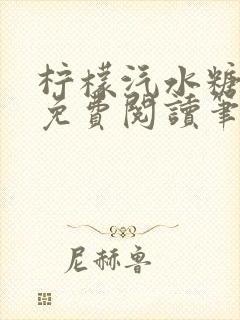 柠檬汽水糖
免費閱讀筆
尼赫鲁